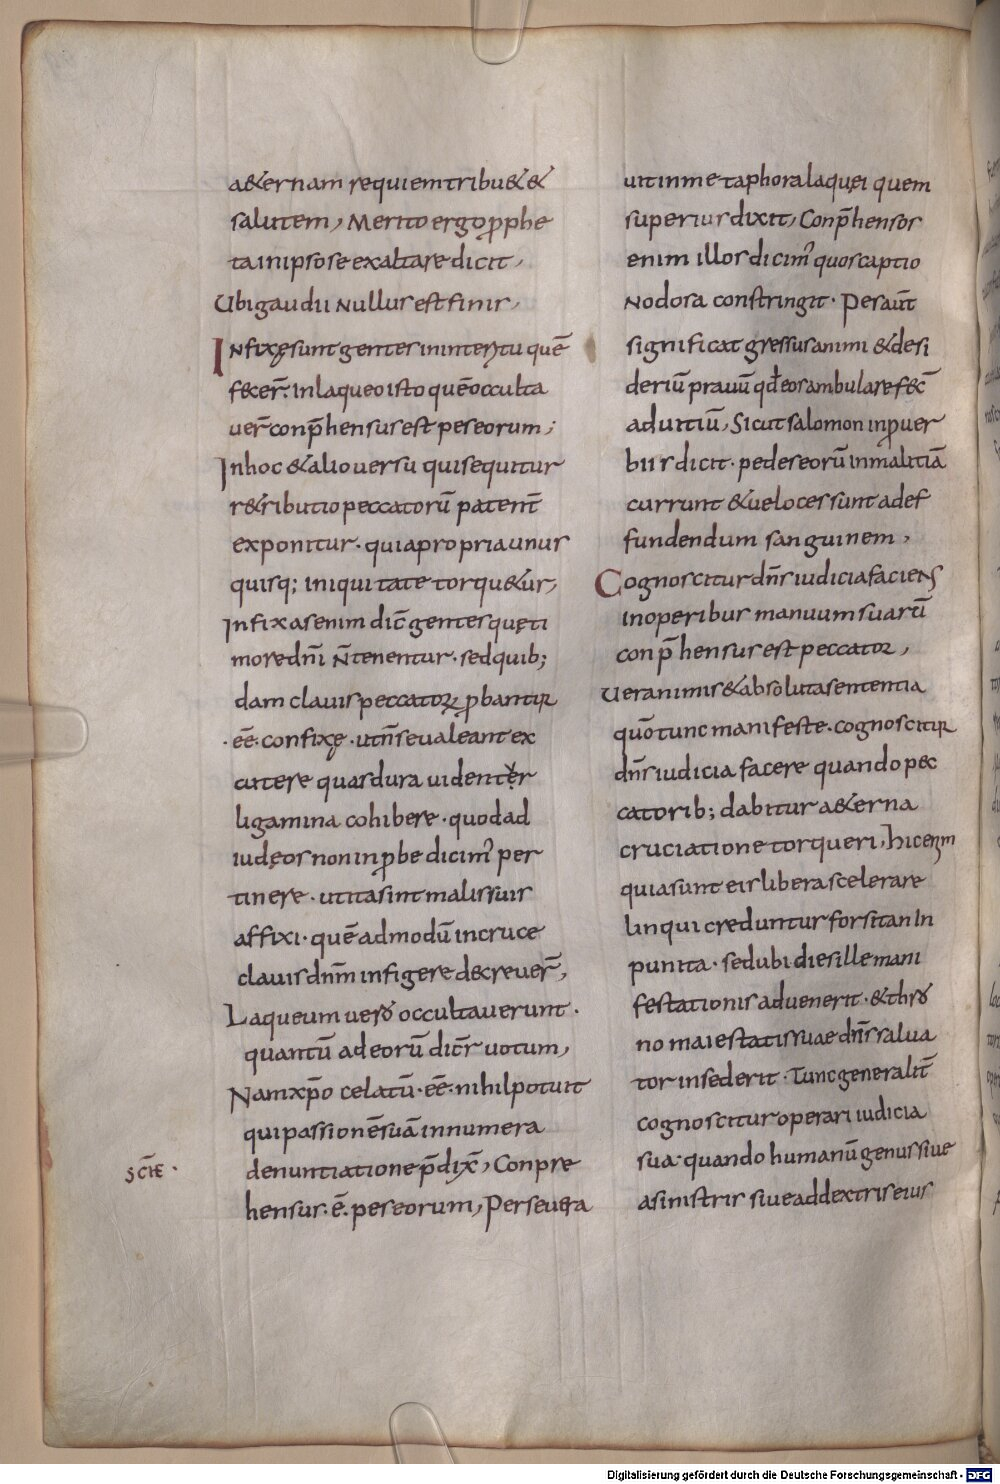 a&ernam requiem tribu& &
salutem, Merito ergo ꝓphe
ta in ipso se exaltare dicit,
Ubi gaudii nullus est finis,
Infixę sunt gentes in interitu quē
fecer̄. in laqueo isto quē occulta
uer̄ conp̄hensus est pes eorum;
In hoc & alio uersu qui sequitur
r&ributio peccatorū patent̄
exponitur. quia propria unus
quisq; iniquitate torqu&ur,
Infixas enim dic̄ gentes quę ti
more dn̄i n̄ tenentur. sed quib;
dam clauis peccatoꝝ ꝓbantur
.eē. confixę. ut n̄ se ualeant ex
cutere quas dura uidentur
ligamina cohibere. quod ad
iudęos non inꝓbe dicim' per
tinere. ut ita sint malis suis
affixi. quē admodū in cruce
clauis dnm̄ infigere decreuer̄,
Laqueum uero occultauerunt.
quantū ad eorū dic̄r uotum,
Nam xp̄o celatū. eē. nihil potuit
qui passionē suā innumera
denuntiatione p̄dix̄, Conpre
hensus. ē. pes eorum, Perseuera
sc̄ie.
uit in metaphora laquei quem
superius dixit, Conp̄hensos
enim illos dicim' quos captio
nodosa constringit. Pes aut̄
significat gressus animi & desi
deriū prauū qd̄ eos ambulare fec̄
ad uitiū, Sicut salomon in ꝓuer
biis dicit. pedes eorū in malitiā
currunt & ueloces sunt ad ef
fundendum sanguinem,
Cognoscitur dn̄s iudicia faciens
in operibus manuum suarū
conp̄hensus est peccator,
Uera nimis & absoluta sententia
quō tunc manifeste. cognoscitur
dn̄s iudicia facere quando pec
catorib; dabitur a&erna
cruciatione torqueri, hic enim
quia sunt eis libera scelera re
linqui creduntur forsitan in
punita. sed ubi dies ille mani
festationis aduenerit. & thro
no maiestatis suae dn̄s salua
tor insederit. Tunc generalit̄
cognoscitur operari iudicia
sua. quando humanū genus siue
a sinistris siue ad dextris eius
Digitalisierung gefördert durch die Deutsche Forschungsgemeinschaft - DFG